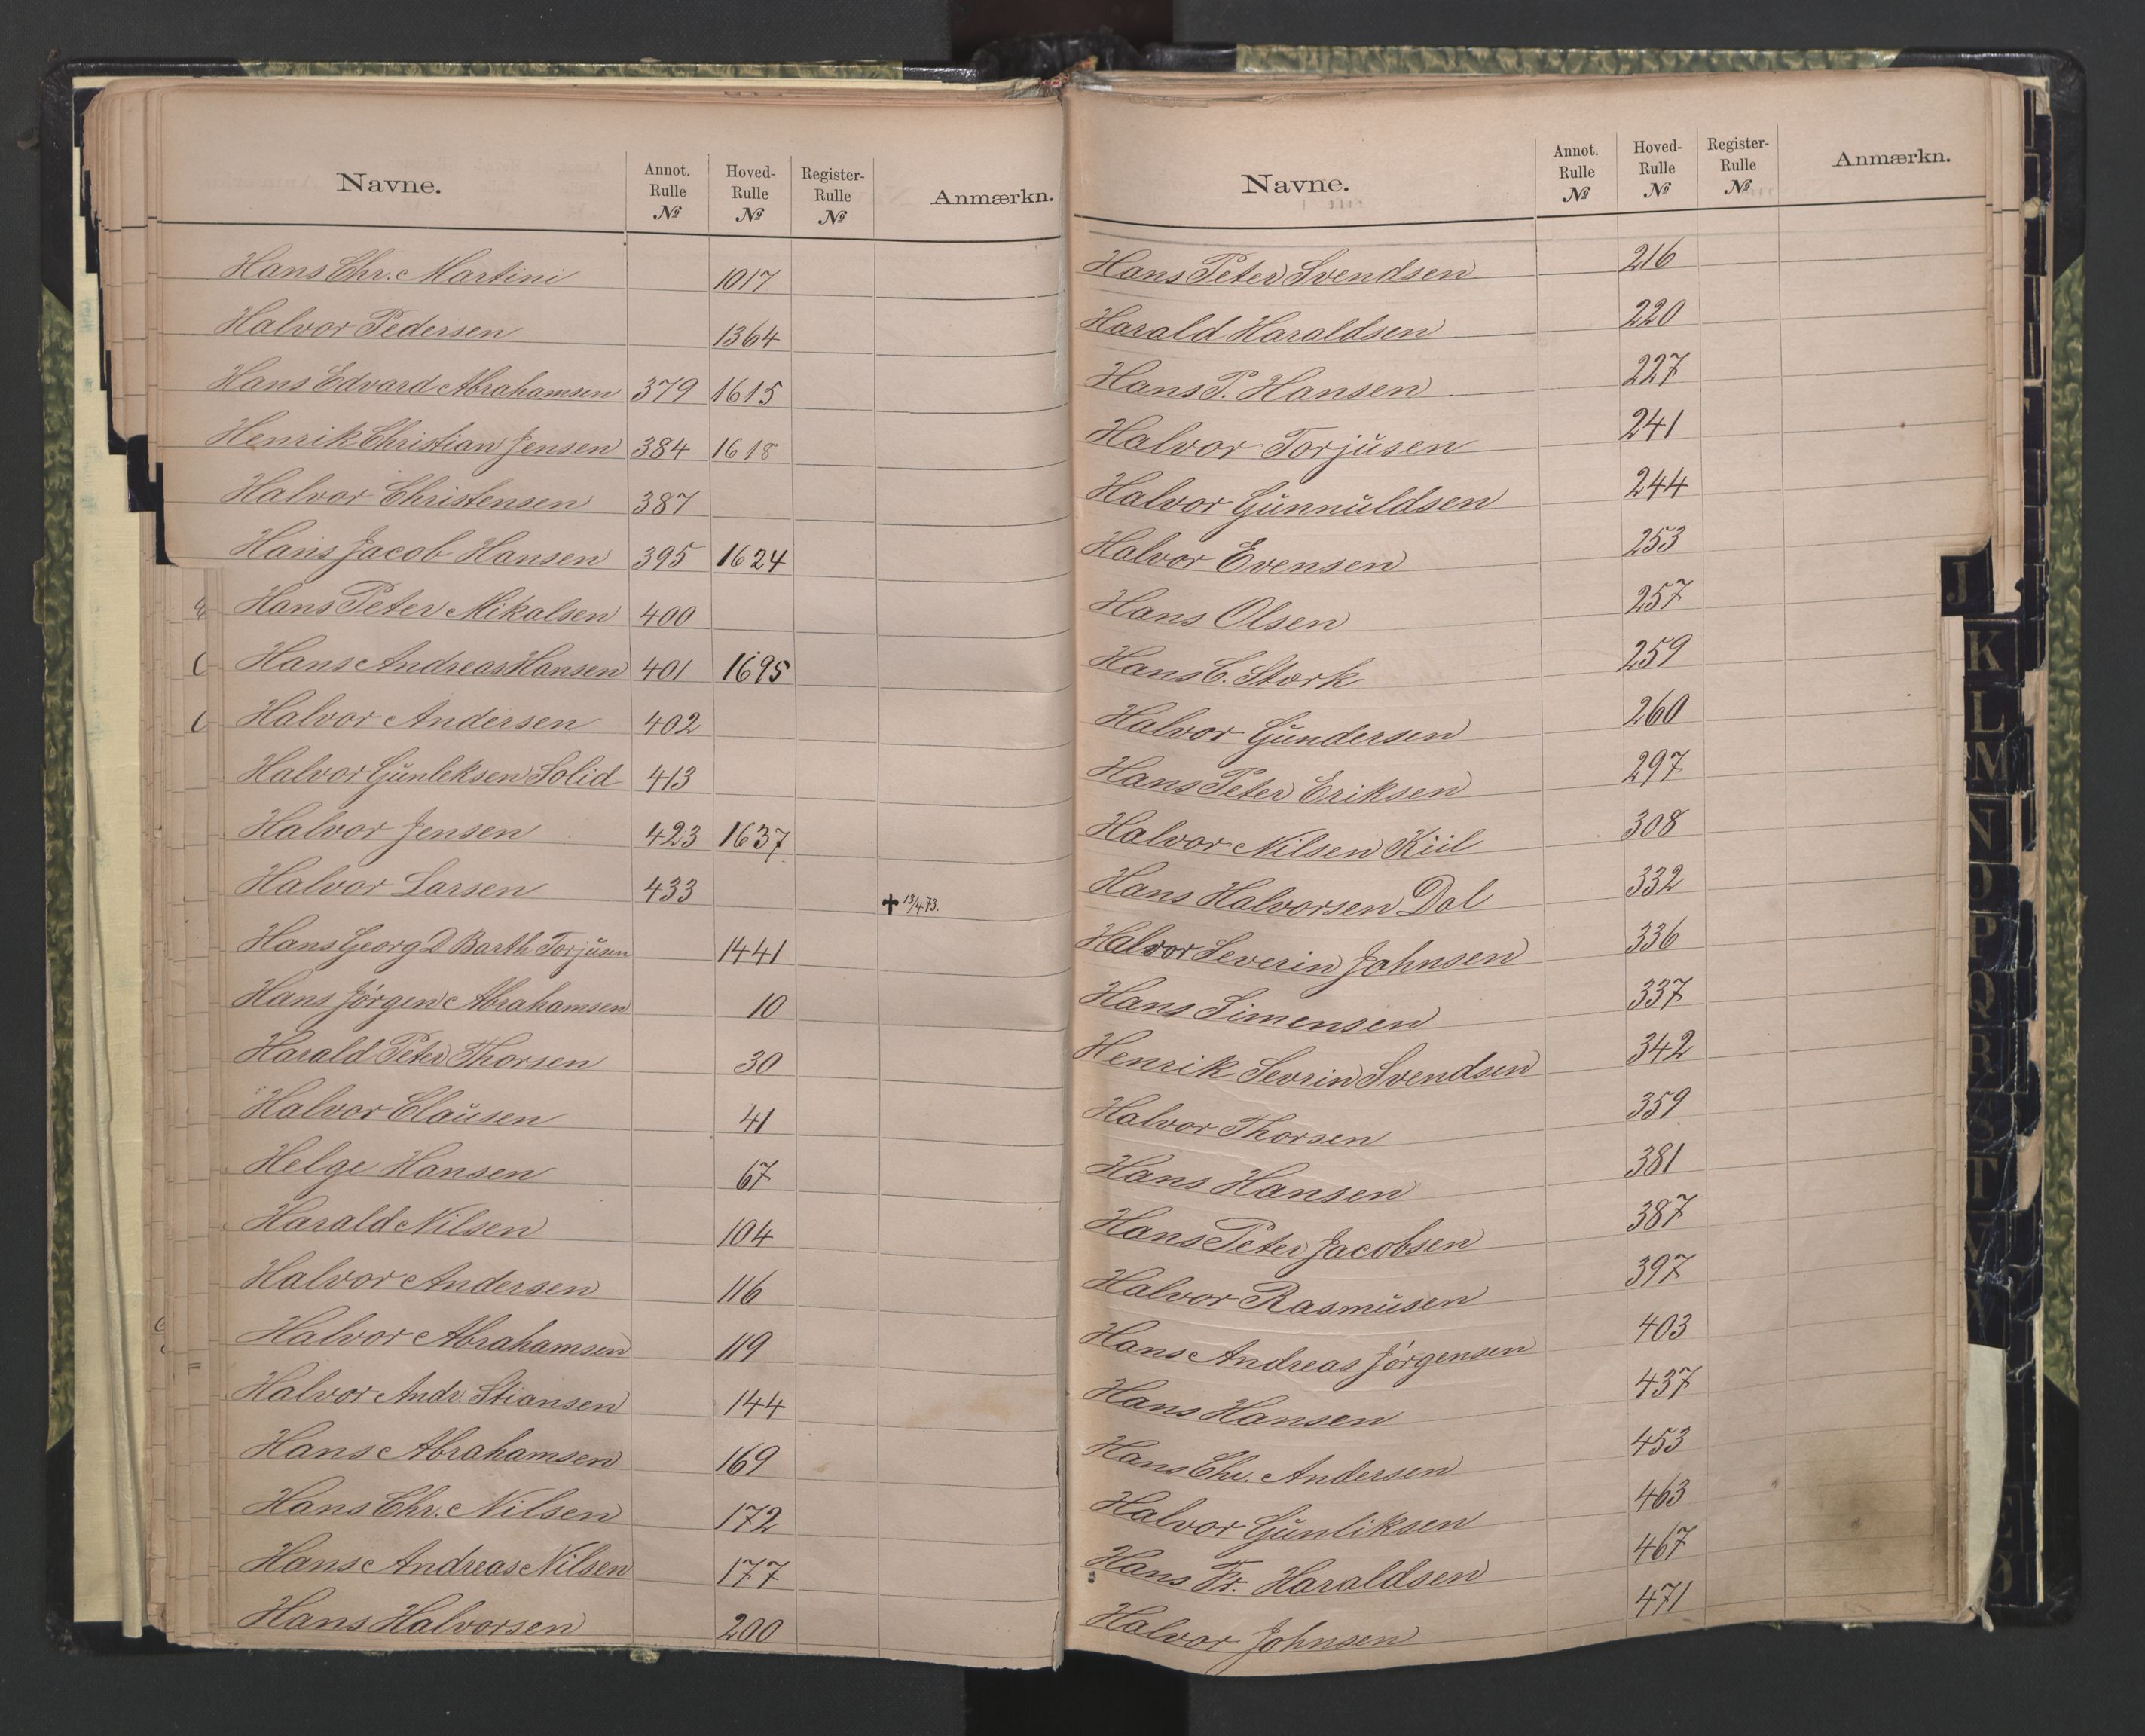 Navne. Annot. Rulle № Hoved-Rulle № Register-Rulle № Anmærkn.
Hans Chr. Martini 1017
Halvor Pedersen 1364
Hans Edvard Abrahamsen 379 1615
Henrik Christian Jensen 384 1618
Halvor Christensen 387
Hans Jacob Hansen 395 1624
Hans Peter Mikalsen 400
Hans Andreas Hansen 401 1695
Halvor Andersen 402
Halvor Gunleksen Solid 413
Halvor Jensen 423 1637
Halvor Larsen 433 ✝ 13/4 73.
Hans Georg D Barth Torjusen 1441
Hans Jørgen Abrahamsen 10
Harald Peter Thorsen 30
Halvor Clausen 41
Helge Hansen 67
Harald Nilsen 104
Halvor Andersen 116
Halvor Abrahamsen 119
Halvor Andr. Stiansen 144
Hans Abrahamsen 169
Hans Chr. Nilsen 172
Hans Andreas Nilsen 177
Hans Halvorsen 200
Navne. Annot. Rulle № Hoved-Rulle № Register-Rulle № Anmærkn.
Hans Peter Svendsen 216
Harald Haraldsen 220
Hans P. Hansen 227
Halvor Torjusen 241
Halvor Gunnuldsen 244
Halvor Evensen 253
Hans Olsen 257
Hans C. Stork 259
Halvor Gundersen 260
Hans Peter Eriksen 297
Halvor Nilsen Kiil 308
Hans Halvorsen Dal 332
Halvor Severin Johnsen 336
Hans Simensen 337
Henrik Sevrin Svendsen 342
Halvor Thorsen 359
Hans Hansen 381
Hans Peter Jacobsen 387
Halvor Rasmusen 397
Hans Andreas Jørgensen 403
Hans Hansen 437
Hans Chr. Andersen 453
Halvor Gunliksen 463
Hans Fr. Haraldsen 467
Halvor Johnsen 471
J
K
L
M
N
P
Q
R
S
T